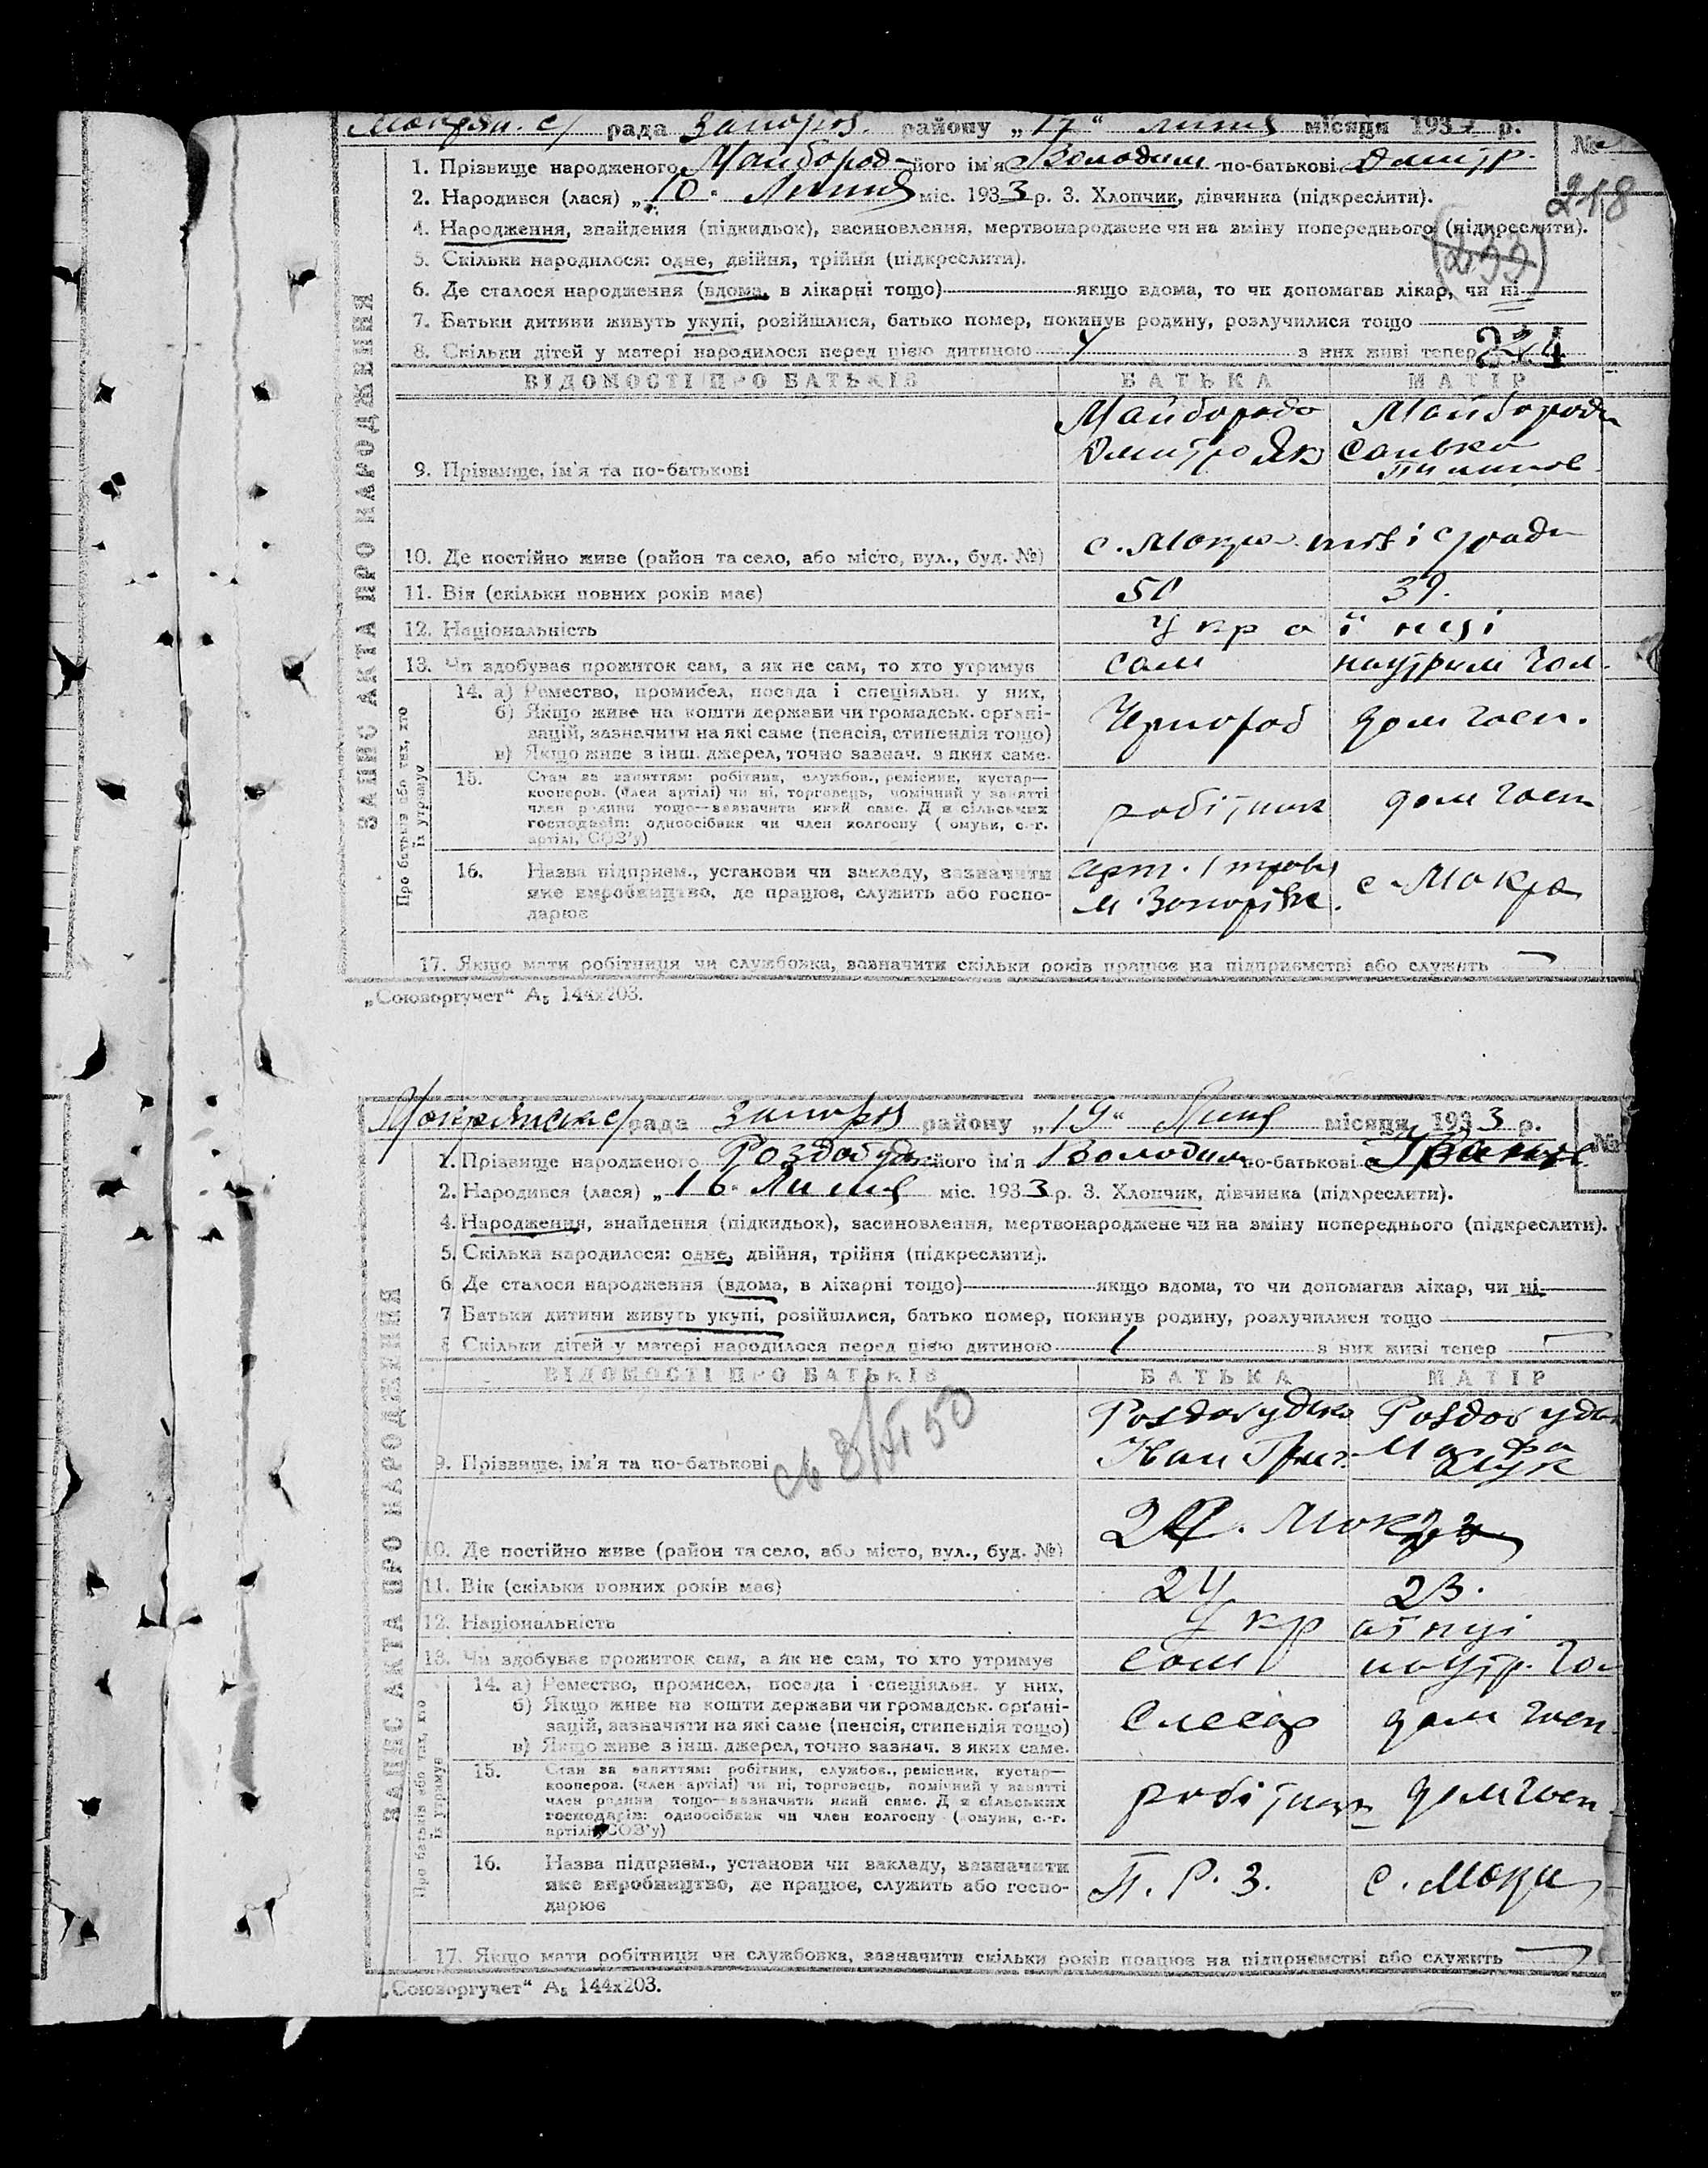 Мокрян. с/ рада Запоріз. району „17“ липня місяця 193 р.
№
1. Прізвище народженого Майбород його ім'я Володим по-батькові Дмитр.
2. Народився (лася) „10“ Липня міс. 1933 р. 3. Хлопчик, дівчинка (підкреслити).
218
4. Народження, знайдення (підкидьок), засиновлення, мертвонароджене чи на зміну попереднього (підкреслити).
(233)
5. Скільки народилося: одне, двійня, трійня (підкреслити).
6. Де сталося народження (вдома, в лікарні тощо) якщо вдома, то чи допомагав лікар, чи ні
7. Батьки дитини живуть укупі, розійшлися, батько помер, покинув родину, розлучилися тощо
8. Скільки дітей у матері народилося перед цією дитиною 4 з них живі тепер
ВІДОМОСТІ ПРО БАТЬКІВ БАТЬКА МАТІР
Майборода Майборода
Дмитро Як Санька
9. Прізвище, ім'я та по-батькові
10. Де постійно живе (район та село, або місто, вул., буд. №) с. Мокрянської с/ради
11. Вік (скільки повних років має) 50 39.
12. Національність Українці
13. Чи здобуває прожиток сам, а як не сам, то хто утримує сам наутрим чол.
ЗАПИС АКТА ПРО НАРОДЖЕННЯ
Про батьків або тих, хто їх утримує
14. а) Ремество, промисел, посада і спеціяльн. у них,
б) Якщо живе на кошти держави чи громадськ. органі-
зацій, зазначити на які саме (пенсія, стипендія тощо)
в) Якщо живе з інш. джерел, точно зазнач. з яких саме.
Чорнороб дом госп.
15. Стан за заняттям: робітник, службов., ремісник, кустар—
кооперов. (член артілі) чи ні, торговець, помічний у занятті
член родини тощо—зазначити який саме. Для сільських
господарів: одноосібник чи член колгоспу (комуни, с.-г.
артілі, СОЗ'у)
робітник дом госп
16. Назва підприєм., установи чи закладу, зазначити
яке виробництво, де працює, служить або госпо-
дарює
арт. с. Мокра
м. Запоріже.
17. Якщо мати робітниця чи службовка, зазначити скільки років працює на підприємстві або служить
„Союзоргучет“ А₅ 144х203.
Мокрянська с/рада Запоріз району „19“ Липня місяця 1933 р.
№
1. Прізвище народженого Роздобудько його ім'я Володим по-батькові Іванов
2. Народився (лася) „16“ Липня міс. 1933 р. 3. Хлопчик, дівчинка (підкреслити).
4. Народження, знайдення (підкидьок), засиновлення, мертвонароджене чи на зміну попереднього (підкреслити).
5. Скільки народилося: одне, двійня, трійня (підкреслити).
6. Де сталося народження (вдома, в лікарні тощо) якщо вдома, то чи допомагав лікар, чи ні
7. Батьки дитини живуть укупі, розійшлися, батько помер, покинув родину, розлучилися тощо
8. Скільки дітей у матері народилося перед цією дитиною 1 з них живі тепер
ВІДОМОСТІ ПРО БАТЬКІВ БАТЬКА МАТІР
Роздобудько Роздобудь
Іван Григ. Марфа
9. Прізвище, ім'я та по-батькові
10. Де постійно живе (район та село, або місто, вул., буд. №)
11. Вік (скільки повних років має) 24 23.
12. Національність Українці
13. Чи здобуває прожиток сам, а як не сам, то хто утримує сам наутр. чол
ЗАПИС АКТА ПРО НАРОДЖЕННЯ
Про батьків або тих, хто їх утримує
14. а) Ремество, промисел, посада і спеціяльн. у них,
б) Якщо живе на кошти держави чи громадськ. органі-
зацій, зазначити на які саме (пенсія, стипендія тощо)
в) Якщо живе з інш. джерел, точно зазнач. з яких саме.
Слесар дом госп
15. Стан за заняттям: робітник, службов., ремісник, кустар—
кооперов. (член артілі) чи ні, торговець, помічний у занятті
член родини тощо—зазначити який саме. Для сільських
господарів: одноосібник чи член колгоспу (комуни, с.-г.
артілі, СОЗ'у)
робітник дом госп
16. Назва підприєм., установи чи закладу, зазначити
яке виробництво, де працює, служить або госпо-
дарює
П. Р. З. с. Мокр
17. Якщо мати робітниця чи службовка, зазначити скільки років працює на підприємстві або служить
„Союзоргучет“ А₅ 144х203.